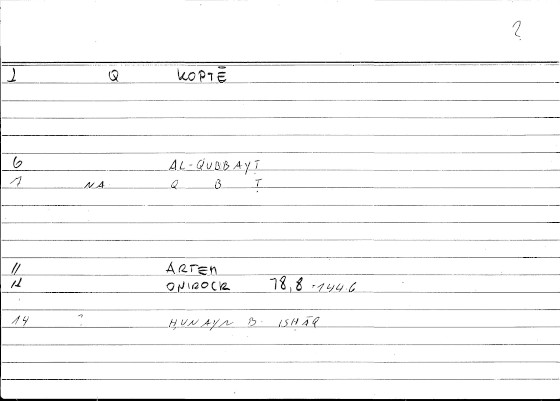 ?
1 Q KOPTĒ
6 AL-QUBBAYṬ
7 NA Q B Ṭ
11 ARTEM
12 ONIROCR 78,8 - 144 6
14 ? ḤUNAYN B. ISḤĀQ